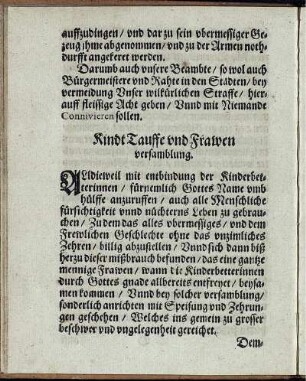 auffzudingen/ vnd dar zu sein vbermessiger Ge-
zeug ihme abgenommen/ vnd zu der Armen noth-
durfft angekeret werden.
Darumb auch vnsere Beambte/ so wol auch
Bürgermeistere vnd Rahte in den Städten/ bey
vermeidung Vnser wilkürlichen Straffe/ hier-
auff fleissige Acht geben/ Vnnd mit Niemande
Connivieren sollen.
Kindt Tauffe vnd Frawen
versamblung.
ALldieweil mit entbindung der Kinderbet-
terinnen/ fürnemlich Gottes Name vmb
hülffe anzuruffen/ auch alle Menschliche
fürsichtigkeit vnnd nüchterns Leben zu gebrau-
chen/ Zu dem das alles vbermessiges/ vnd dem
Frewlichen Geschlechte ohne das vnzimlichs
Zehren/ billig abzustellen/ Vnnd sich dann biß
herzu dieser mißbrauch befunden/ das eine gantze
mennige Frawen/ wann die Kinderbetterinnen
durch Gottes gnade allbereits entfreyet/ beysa-
men kommen/ Vnnd bey solcher versamblung/
sonderlich anrichten mit Speisung vnd Zehrun-
gen geschehen/ Welches ins gemein zu grosser
beschwer vnd vngelegenheit gereichet.
Dem-